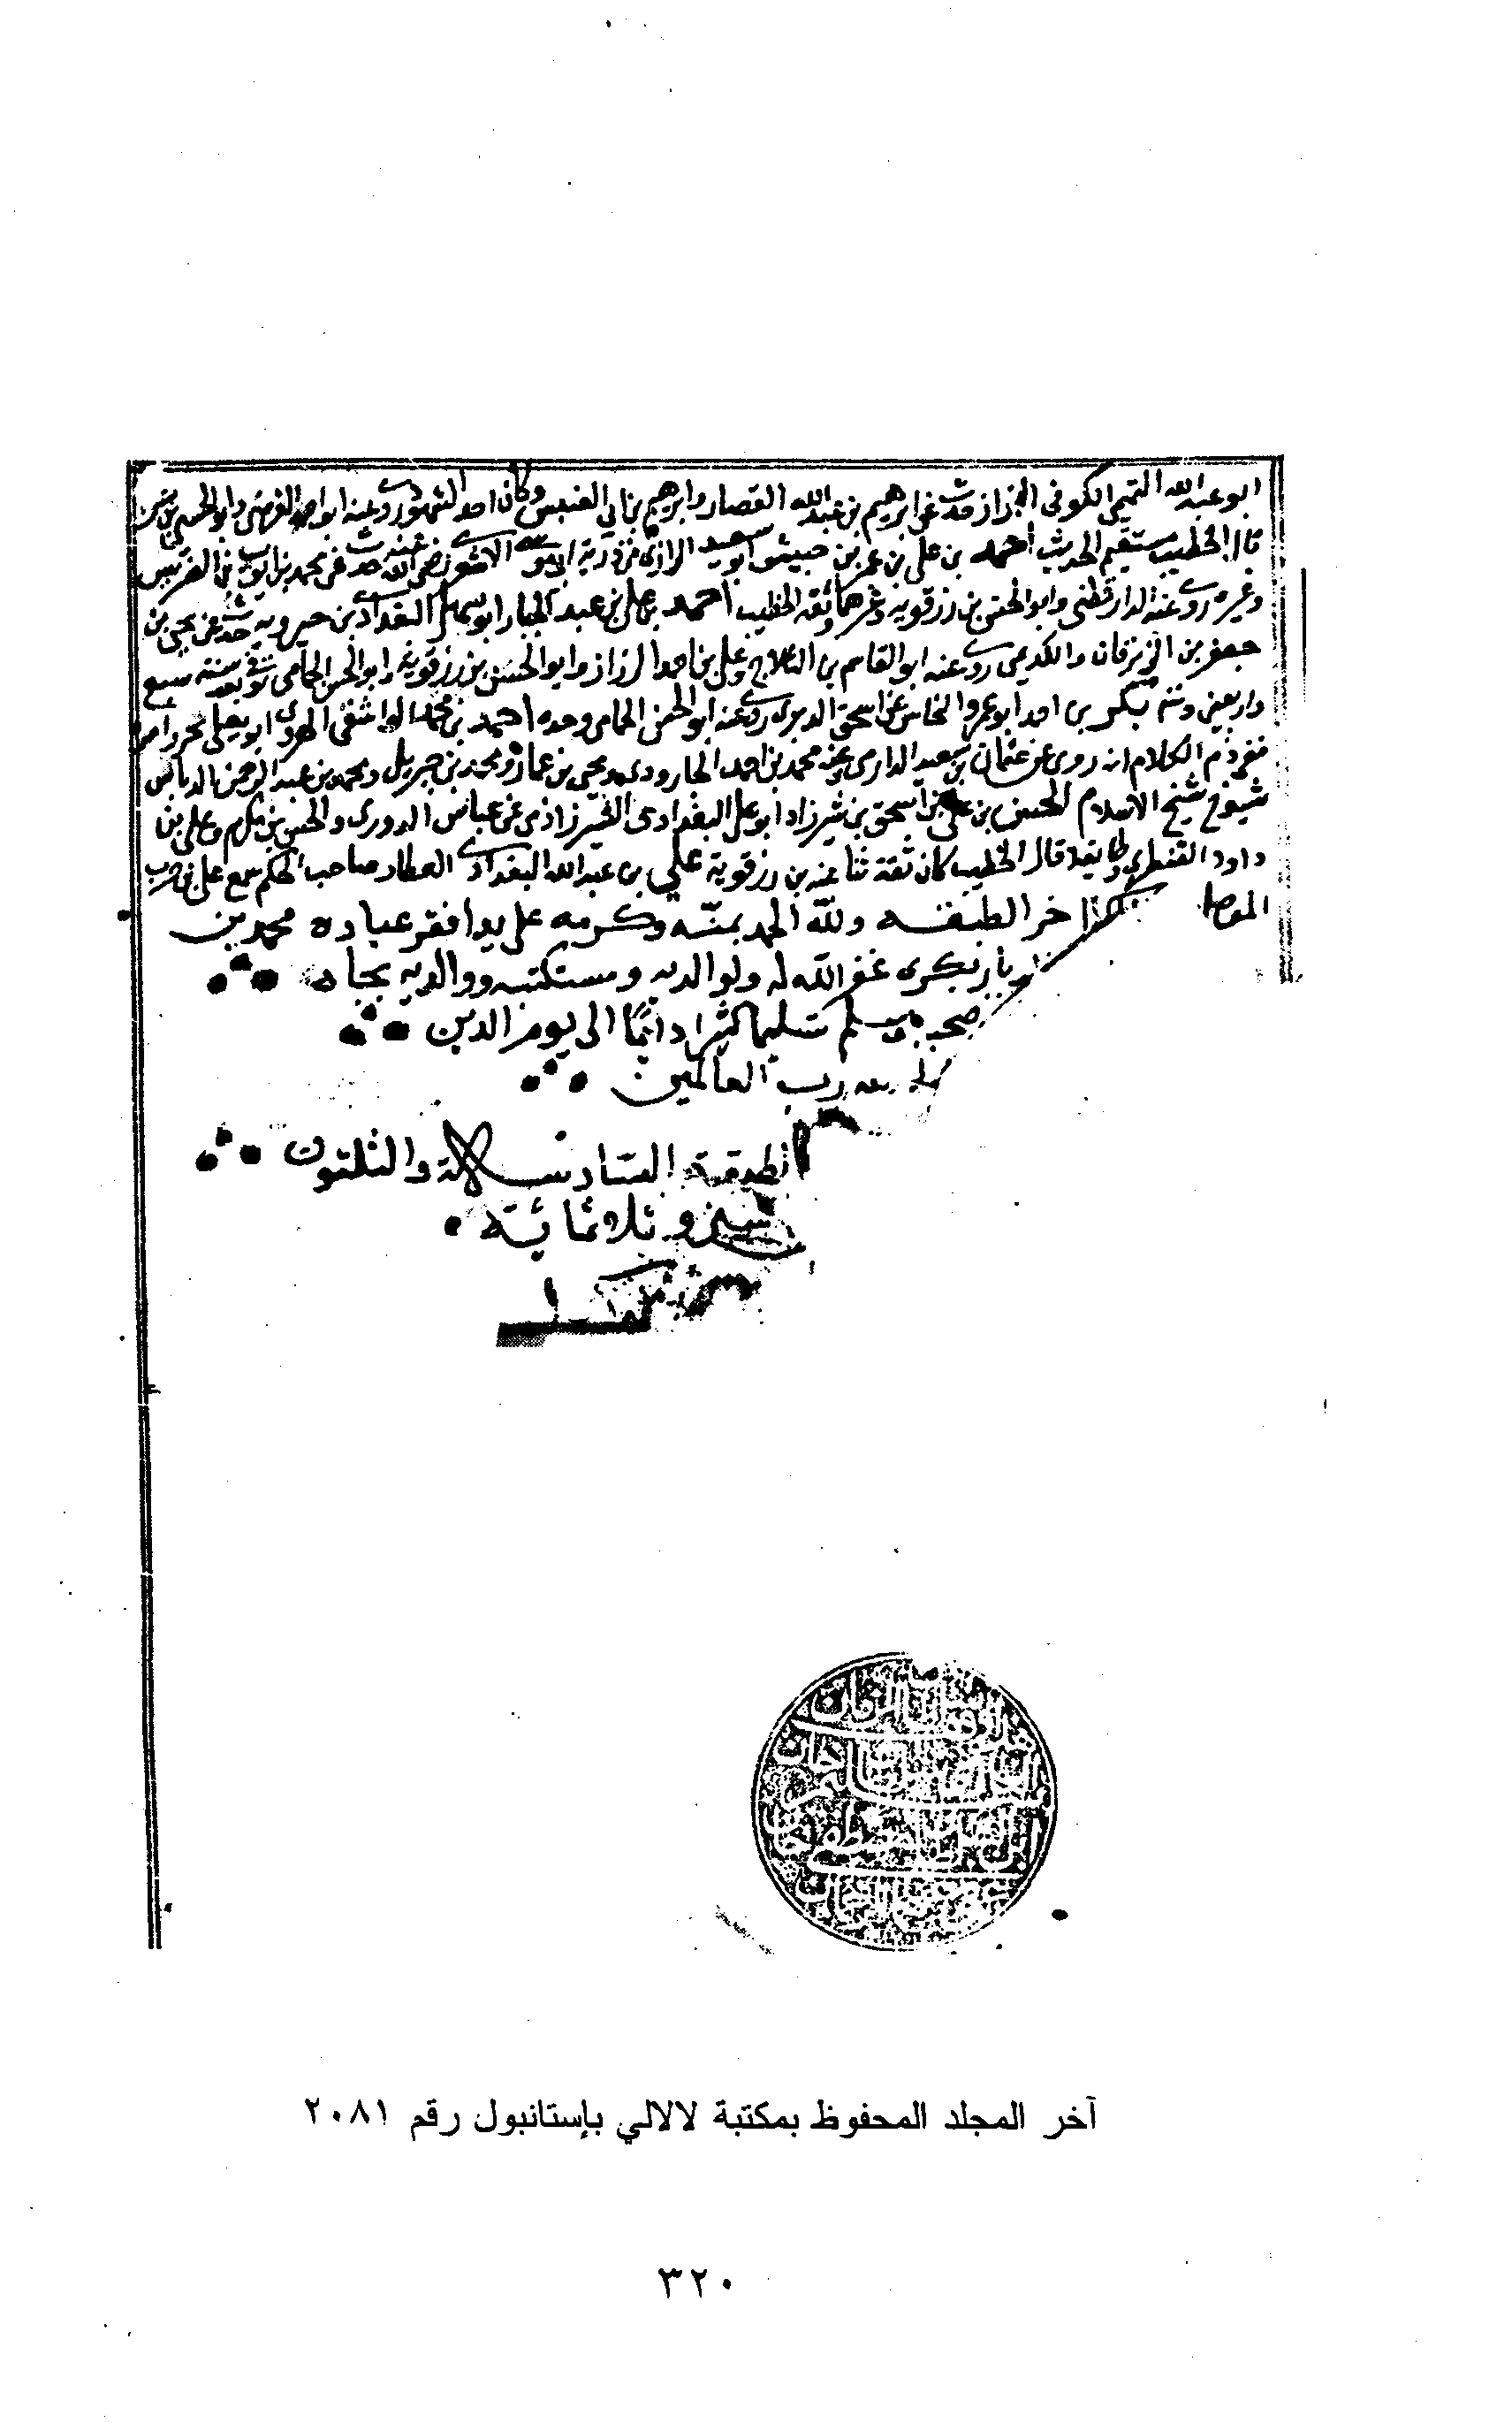 ابو عبد الله التميمي الكوفي الخزاز حدث عن ابرهيم بن عبد الله القصار وابرهيم بن ابي العنبس وكان احد الشهود روى عنه ابو احمد الفرضي وابو الحسن بن
قال الخطيب مستقيم الحديث احمد بن علي بن عمر بن حبيش ابو سعيد الرازي من ذرية ابي موسى الاشعري رضي الله عنه حدث عن محمد بن ايوب بن الضريس
وغيره روى عنه الدارقطني وابو الحسن بن رزقويه وغيرهما وثقه الخطيب احمد بن علي بن عبد الجبار ابو سهل البغدادي بن حيرويه حدث عن يحيى بن
جعفر بن الزبرقان والكديمي روى عنه ابو القاسم بن الثلاج وعلي بن احمد الرزاز وابو الحسن بن رزقوية وابو الحسن الحمامي توفي بعد سنة سبع
واربعين بكر بن احمد ابو عمرو النخاس عن اسحق الدبري روى عنه ابو الحسن الحمامي وحده احمد بن محمد الواشقي الهروي ابو يعلى
ففي ذم الكلام انه روى عن عثمان بن سعيد الدارمي وعنه محمد بن احمد الجارودي ويحيى بن عمار ومحمد بن جبريل ومحمد بن عبد الرحمن الدباس
شيوخ شيخ الاسلام الحسن بن علي بن اسحق بن شيرزاد ابو علي البغدادي الشيرزاذي عن عباس الدوري والحسن بن مكرم وعلي بن
داود القنطري وطايفة قال الخطيب كان ثقة ثنا عنه بن رزقوية علي بن عبد الله البغدادي العطار صاحب الحكم سمع علي بن حرب
الموصلي اخر الطبقة ولله الحمد بمنه وكرمه على يد افقر عباده محمد بن
بكري غفر الله له ولوالديه ومستكتبه ووالديه بجاه
صحبه وسلم تسليما كثيرا دائما الى يوم الدين
لله رب العالمين
الطبقة السادسة والثلثون
وثلاثمائة
آخر المجلد المحفوظ بمكتبة لالالي بإستانبول رقم ٢٠٨١
٣٢٠